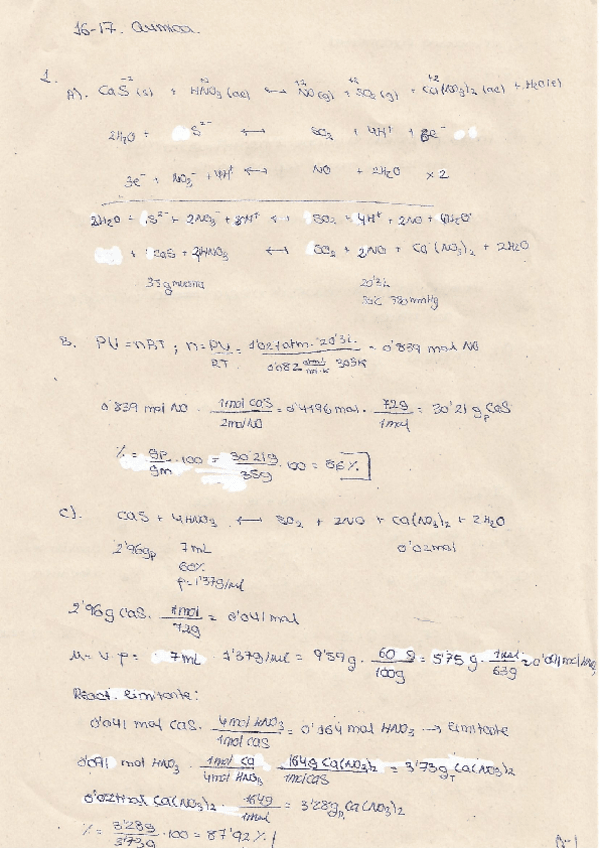 16-17. Química.
1.
A). CaS (s) + HNO₃ (ac) ↔ NO(g) + SO₂ (g) + Ca(NO₃)₂ (ac) + H₂O(l)
2H₂O + S²⁻ ↔ SO₂ + 4H⁺ + 6e⁻
3e⁻ + NO₃⁻ + 4H⁺ ↔ NO + 2H₂O x 2
2H₂O + S²⁻ + 2NO₃⁻ + 8H⁺ ↔ SO₂ + 4H⁺ + 2NO + 4H₂O
CaS + HNO₃ ↔ SO₂ + 2NO + Ca(NO₃)₂ + 2H₂O
35g muestra 20'3L
780mmHg
B. PV = nRT ; n = PV/RT = 1'027atm · 20'3L / 0'082 atm·l/mol·k 305K = 0'839 mol NO
0'839 mol NO · 1mol CaS/2mol NO = 0'4196 mol · 72g/1mol = 30'21 gp CaS
% = gp/gm · 100 = 30'21g/35g · 100 = 86%
C). CaS + 4HNO₃ ↔ SO₂ + 2NO + Ca(NO₃)₂ + 2H₂O
2'96gp 7mL 0'02mol
60%
ρ=1'37g/ml
2'96g CaS · 1mol/72g = 0'041 mol
m = v · ρ = 7mL · 1'37g/mL = 9'59g · 60g/100g = 5'75g · 1mol/63g = 0'091 mol HNO₃
React. limitante:
0'041 mol CaS · 4mol HNO₃/1mol CaS = 0'164 mol HNO₃ → limitante
0'091 mol HNO₃ · 1mol Ca/4mol HNO₃ · 164g Ca(NO₃)₂/1mol CaS = 3'73gT Ca(NO₃)₂
0'02 mol Ca(NO₃)₂ · 164g/1mol = 3'28gp Ca(NO₃)₂
% = 3'28g/3'73g · 100 = 87'92%